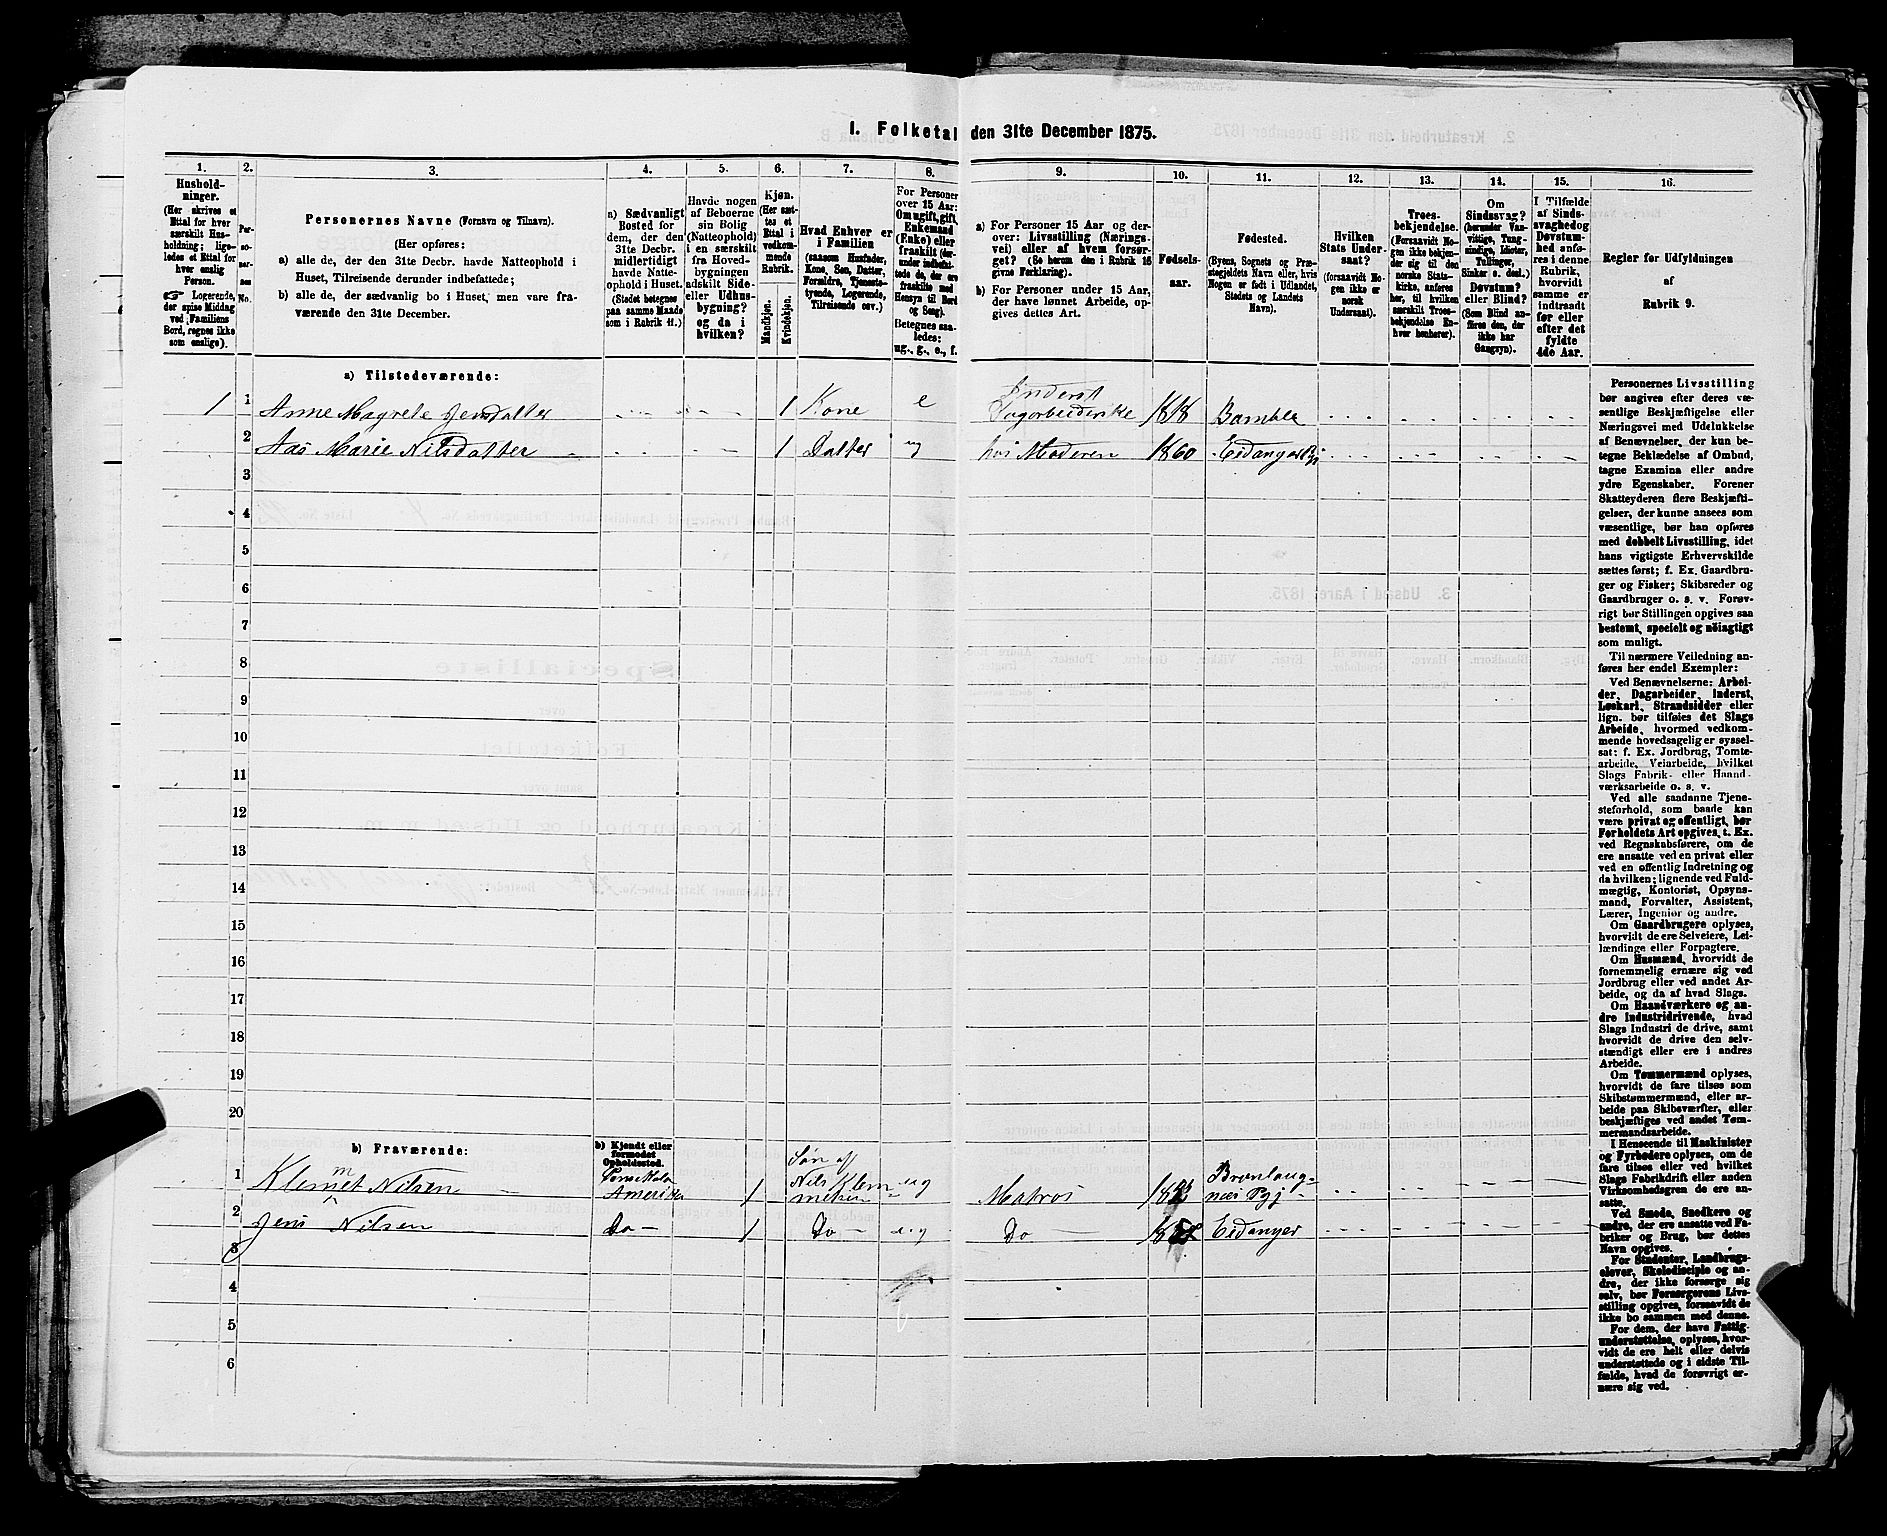 1. Folketal den 31te December 1875.
1.
Hushold-
ninger.
(Her skrives et
Ettal for hver
særskilt Hus-
holdning; lige-
ledes et Ettal for
hver enslig
Person.
☞ Logerende,
der spise Middag
ved Familiens
Bord, regnes ikke
som enslige).
2.
Per-
so-
ner-
nes
No.
3.
Personernes Navne (Fornavn og Tilnavn).
(Her opføres:
a) alle de, der den 31te Decbr. havde Natteophold i
Huset, Tilreisende derunder indbefattede;
b) alle de, der sædvanlig bo i Huset, men vare fra-
værende den 31te December.
4.
a) Sædvanligt
Bosted for
dem, der den
31te Decbr.
midlertidigt
havde Natte-
ophold i Huset.
(Stedet betegnes
paa samme Maade
som i Rubrik 11.)
5.
Havde nogen
af Beboerne
sin Bolig
(Natteophold)
i en særskilt
fra Hoved-
bygningen
adskilt Side-
eller Udhus-
bygning?
og da i
hvilken?
6.
Kjøn.
(Her sæt-
tes et
Ettal i
vedkom-
mende
Rubrik.
Mandkjøn.
Kvindekjøn.
7.
Hvad Enhver er
i Familien
(saasom Husfader,
Kone, Søn, Datter,
Forældre, Tjeneste-
tyende, Logerende,
Tilreisende osv.)
8.
For Personer
over 15 Aar:
Om ugift, gift,
Enkemand
(Enke) eller
fraskilt (der-
under indbefat-
tede de, der ere
fraskilte med
Hensyn til Bord
og Seng).
Betegnes saa-
ledes:
ug., g., e., f.
9.
a) For Personer 15 Aar og der-
over: Livsstilling (Nærings-
vei) eller af hvem forsør-
get? (Se herom den i Rubrik 16
givne Forklaring).
b) For Personer under 15 Aar,
der have lønnet Arbeide, op-
gives dettes Art.
10.
Fødsels-
aar.
11.
Fødested.
(Byens, Sognets og Præ-
stegjeldets Navn eller, hvis
Nogen er født i Udlandet,
Stedets og Landets
Navn).
12.
Hvilken
Stats Under-
saat?
(forsaavidt No-
gen ikke er
norsk
Undersaat).
13.
Troes-
bekjendelse.
(Forsaavidt No-
gen ikke bekjen-
der sig til den
norske Stats-
kirke, anføres
her, til hvilken
særskilt Troes-
bekjendelse En-
hver henhører).
14.
Om
Sindssvag?
(herunder Van-
vittige, Tung-
sindige, Idioter,
Tullinger,
Sinker o. desl.)
Døvstum?
eller Blind?
(Som Blind an-
føres den, der
ikke har
Gangsyn).
15.
I Tilfælde
af Sinds-
svaghed og
Døvstum-
hed anfø-
res i denne
Rubrik,
hvorvidt
samme er
indtraadt
før eller
efter det
fyldte
4de Aar.
16.
Regler for Udfyldningen
af
Rubrik 9.
a) Tilstedeværende:
1 1 Anne Magrete Jensdatter 1 Kone e Inderst
Dagarbeiderske 1818 Bamble
2 Aas Marie Nilsdatter 1 Datter ug hos Moderen 1860 Eidanger Pgj
3
4
5
6
7
8
9
10
11
12
13
14
15
16
17
18
19
20
b) Fraværende:
b) Kjendt eller
formodet
Opholdssted.
1 Klemmet Nilsen Amerika 1 Søn af
Nils Klem-
metsen ug Matros Brunlaug-
næs Pgj
2 Jens Nilsen Do 1 Do ug Do Eidanger
3
4
5
6
Personernes Livsstilling
bør angives efter deres væ-
sentlige Beskjæftigelse eller
Næringsvei med Udelukkelse
af Benævnelser, der kun be-
tegne Beklædelse af Ombud,
tagne Examina eller andre
ydre Egenskaber. Forener
Skatteyderen flere Beskjæfti-
gelser, der kunne ansees som
væsentlige, bør han opføres
med dobbelt Livsstilling, idet
hans vigtigste Erhvervskilde
sættes først; f. Ex. Gaardbru-
ger og Fisker; Skibsreder og
Gaardbruger o. s. v. Forøv-
rigt bør Stillingen opgives saa
bestemt, specielt og nøiagtigt
som muligt.
Til nærmere Veiledning an-
føres her endel Exempler:
Ved Benævnelserne: Arbei-
der, Dagarbeider, Inderst,
Løskarl, Strandsidder eller
lign. bør tilføies det Slags
Arbeide, hvormed vedkom-
mende hovedsagelig er syssel-
sat: f. Ex. Jordbrug, Tomte-
arbeide, Veiarbeide, hvilket
Slags Fabrik- eller Haand-
værksarbeide o. s. v.
Ved alle saadanne Tjene-
steforhold, som baade kan
være privat og offentligt, bør
Forholdets Art opgives, t. Ex.
ved Regnskabsførere, om de
ere ansatte ved en privat eller
ved en offentlig Indretning og
da hvilken; lignende ved Fuld-
mægtig, Kontorist, Opsyns-
mand, Forvalter, Assistent,
Lærer, Ingeniør og andre.
Om Gaardbrugere oplyses,
hvorvidt de ere Selveiere, Lei-
lændinge eller Forpagtere.
Om Husmænd, hvorvidt de
fornemmelig ernære sig ved
Jordbrug eller ved andet Ar-
beide, og da af hvad Slags.
Om Haandværkere og an-
dre Industridrivende, hvad
Slags Industri de drive, samt
hvorvidt de drive den selv-
stændigt eller ere i andres
Arbeide.
Om Tømmermænd oplyses,
hvorvidt de fare tilsøs som
Skibstømmermænd, eller ar-
beide paa Skibsværfter, eller
beskjæftiges ved andet Tøm-
mermandsarbeide.
I Henseende til Maskinister
og Fyrbødere oplyses, om de
fare tilsøs eller ved hvilket
Slags Fabrikdrift eller anden
Virksomhedsgren de ere an-
satte.
Ved Smede, Snedkere og
andre, der ere ansatte ved Fa-
briker og Brug, bør dettes
Navn opgives.
For Studenter, Landbrugs-
elever, Skoledisciple og an-
dre, der ikke forsørge sig
selv, bør Forsørgerens Livs-
stilling opgives, forsaavidt de
ikke bo sammen med denne.
For dem, der have Fattig-
understøttelse, oplyses, hvor-
vidt de ere helt eller delvis
understøttede og i sidste Til-
fælde, hvad de forøvrigt er-
nære sig ved.